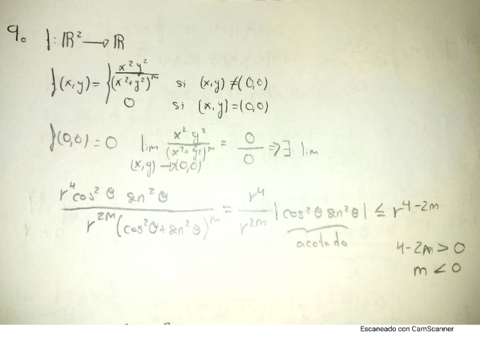 9. f: ℝ² → ℝ
f(x,y) = { x² y² / (x²+y²)^m si (x,y) ≠ (0,0)
0 si (x,y) = (0,0)
f(0,0) = 0 lim (x,y)→(0,0) x² y² / (x²+y²)^m = 0/0 ⇒ ∃ lim
r⁴ cos² θ sen² θ / r^2m (cos² θ + sen² θ)^m = r⁴ / r^2m |cos² θ sen² θ| ≤ r^4-2m
acotado
4-2m > 0
m < 0
Escaneado con CamScanner